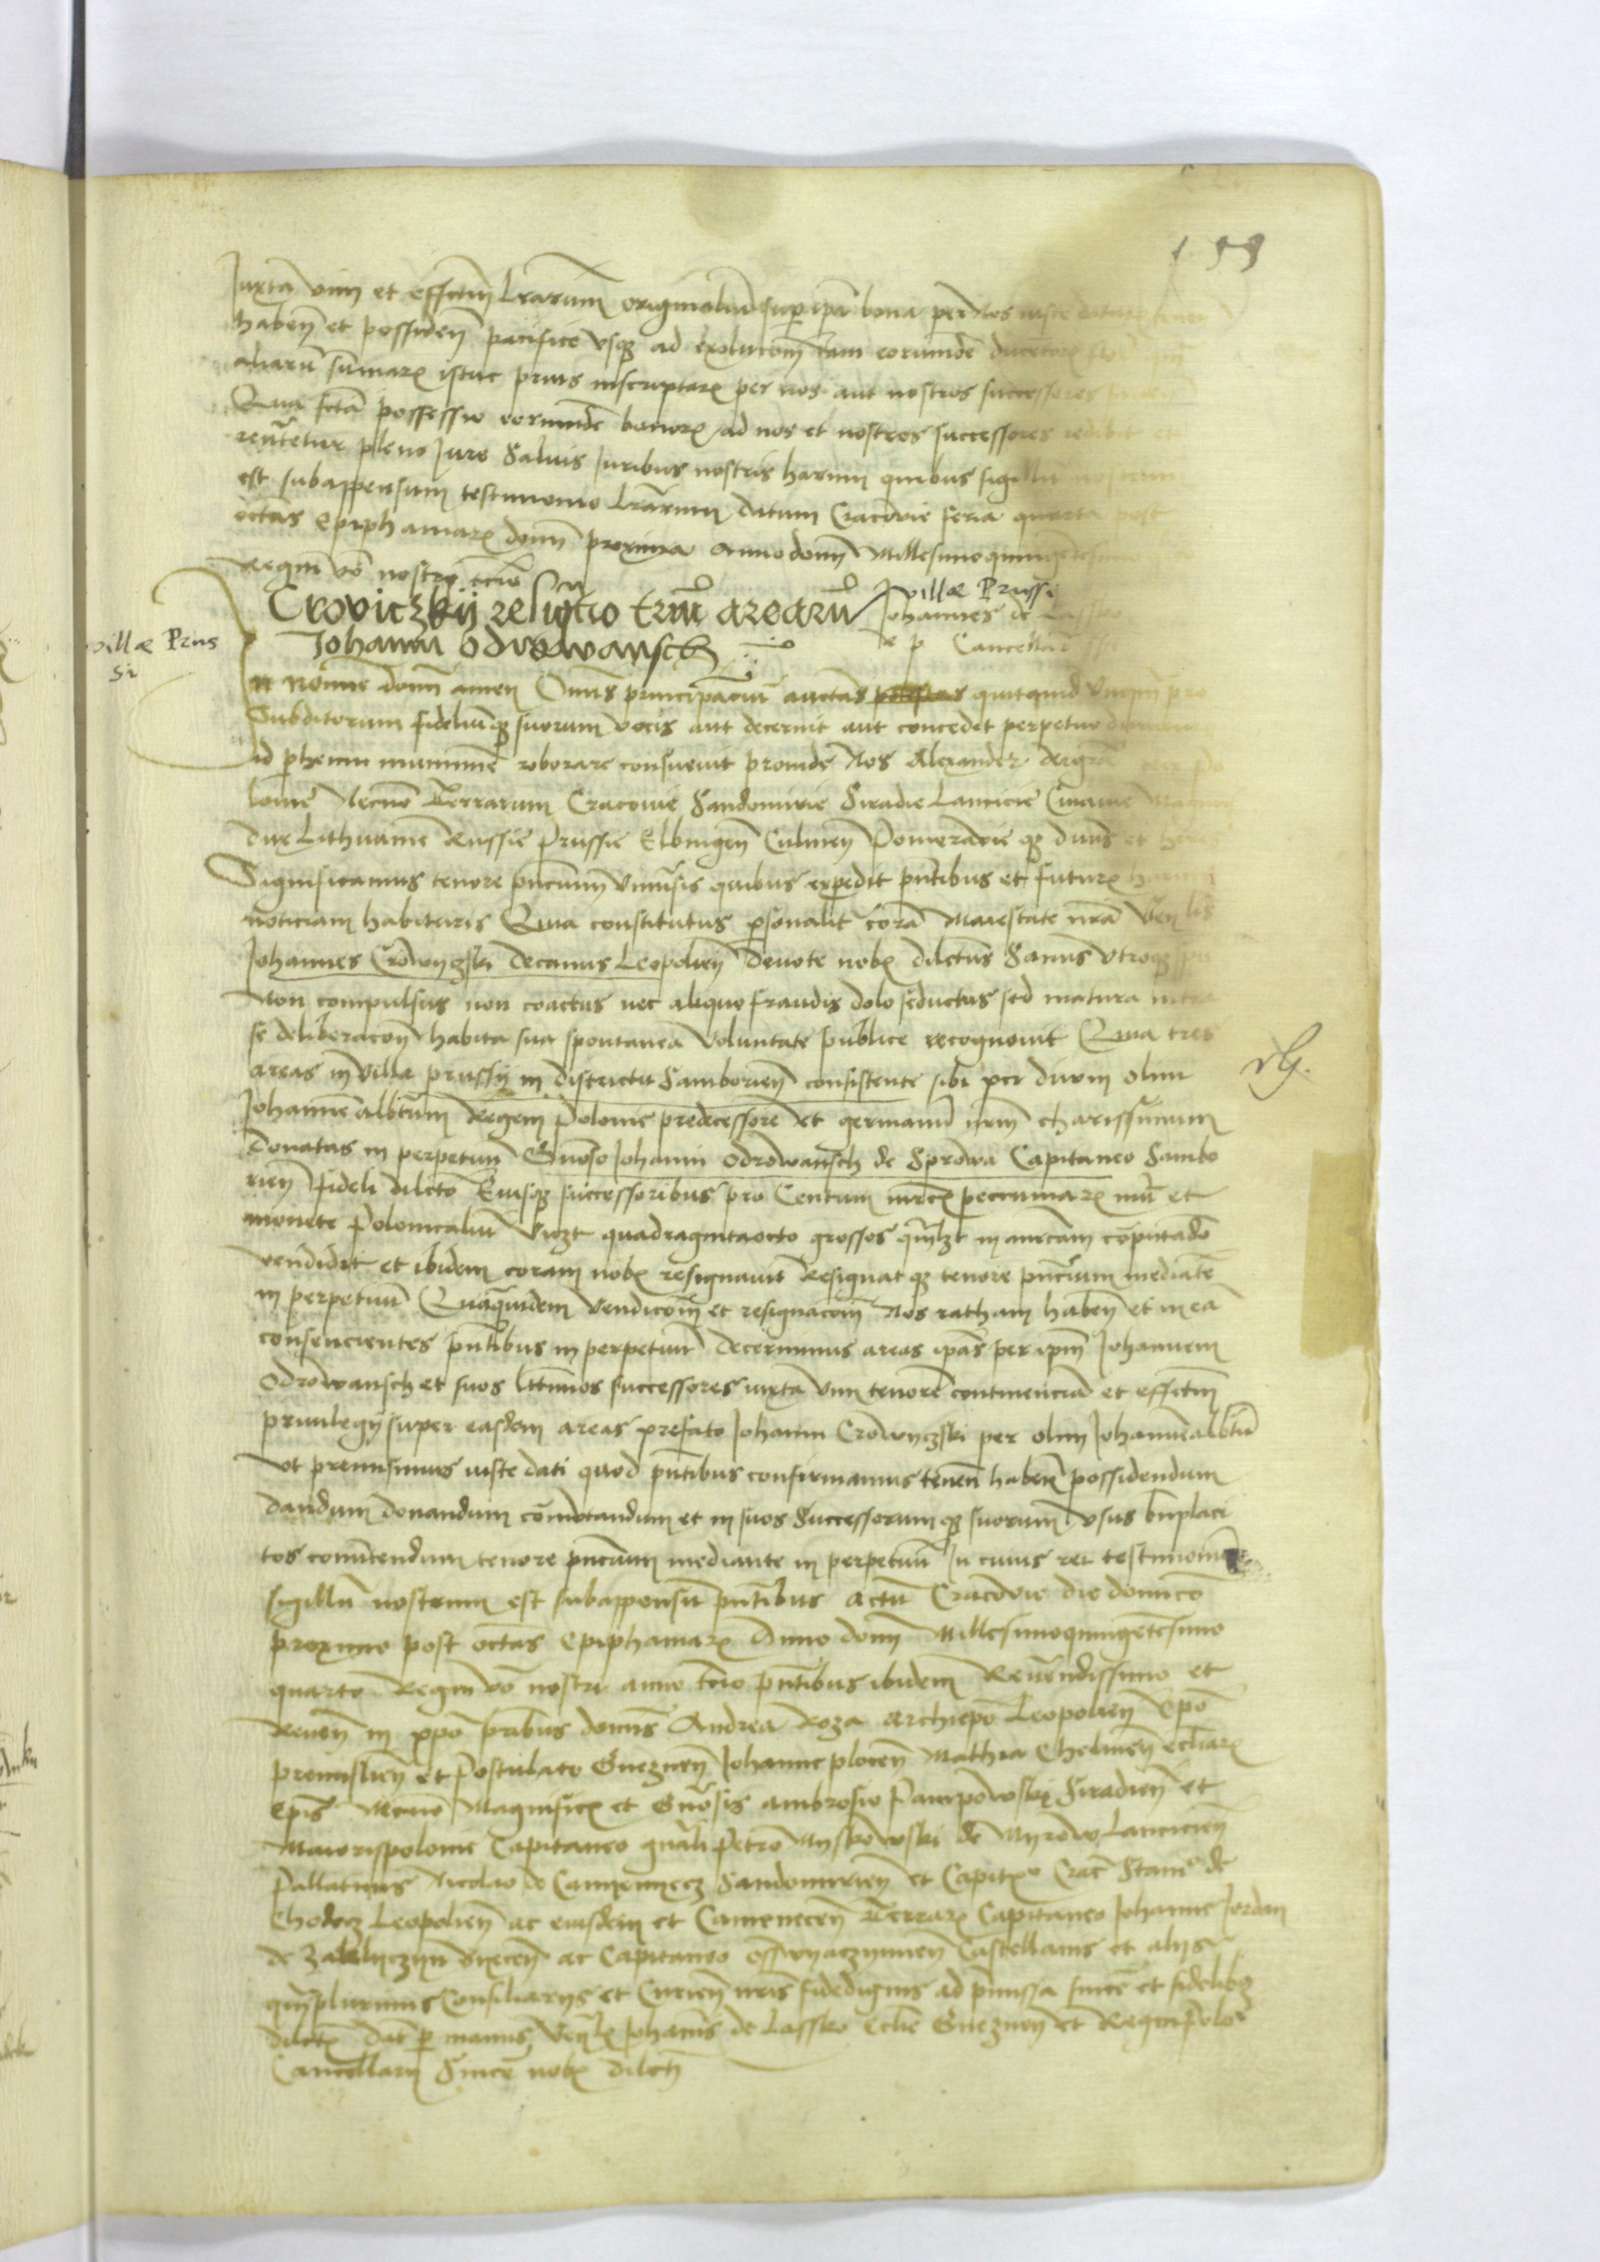 199
Juxta vim et effectum lrarum originalium super ipsa bona per nos iuste
haben et possiden pacifice usq ad exolucionem tam eorumdem ducentorum
aliarum sumarum istuc prius inscriptarum per nos aut nostros successores
Qua facta possessio eorumdem bonorum ad nos et nostros successores redibit et
revertetur pleno Jure Salvis Juribus nostris harum quibus sigillum nostrum
est subappensum testimonio lrarum datum Cracovie feria quarta post
octas Epiphaniarum domi proxima Anno domi Millesimoquingentesimo
Regni vo nostri tcio
villæ Prussi
Croviczkij resignatio trium arearum Johannes de Lassko
Johanni Odrowansch R p Cancellarius
villæ Prus
si
In nomine domi amen Omnis principatum auctas potestas quitquid unquam pro
Subditorum fideliumq suorum votis aut decernit aut concedet perpetuo
id perhenni munimine roborare consuevit proinde Nos Alexander dei gra
lonie Necno Terrarum Cracovie Sandomirie Siradie Lancicie Cuiavie
dux Lithuanie Russie Prussie Elbingen Culmen Pomeranie q duns et
Significamus tenore pncium universis quibus expedit pntibus et futuris harum
noticiam habituris Qua constitutus personalit cora Maiestate nra Ven
Johannes Crowyczski decanus Leopolien devote nobis dilectus Sanus utroq
Non compulsus non coactus nec aliquo fraudis dolo seductus sed matura intra
se deliberacon habita sua spontanea voluntate publice recognovit Qua tres
areas in villa prussij in districtu Samborien consistente sibi per divum olim
Johannem albtum Regem Polonie predecessore et germanum nrum charissimum
donatas in perpetuum Gnoso Johanni Odrowansch de Sprowa Capitaneo Sambo
rien fideli dilcto Eiusq successoribus pro Centum mrcis peccuniarum mu et
monete Polonicalium videlt quadragintaocto grossos qmlzt in mrcam computado
vendidit et ibidem coram nobis resignavit Resignat q tenore pncium mediate
in perpetuum Quaquidem vendicom et resignacom Nos ratham haben et in ea
consencientes pntibus in perpetuum decernimus areas ipas per ipm Johannem
Odrowansch et suos lttimos successores iuxta vim tenore continencia et effectum
privilegij super easdem areas prefato Johanni Crowyczski per olim Johannealbtu
ut premisimus iuste dati quod pntibus confirmamus tenen haben possidendum
dandum donandum comutandum et in suos Successorum q suorum usus bnplaci
tos convertendum tenore pncium mediante in perpetuum In cuius rei testimonium
sigillu nostrum est subappensum pntibus Actu Cracovie die dominico
proximo post octas Epiphaniarum Anno domi Millesimoquingetesimo
quarto Regni vo nostri anno tcio pntibus ibidem Reverendissimo et
Reven in xpo pribus domis Andrea Roza Archiepo Leopolien Epo
premislien et Postulato Gneznen Johanne plocen Mathia Chelmen eccliarum
Epis Necno Magnificis et Gnosis Ambrosio Pampowski Siradien et
Maiorispolonie Capitaneo gnali Petro Myskowski de Myrow Lancicien
Pallatinis Nicolao de Camyenyecz Sandomirien et Capitno Crac Stanis de
Chodecz Leopolien ac eiusdem et Camenecen Terrarum Capitaneo Johanne Jordan
de Zaklyczyn Byecen ac Capitaneo osswyaczymen Castellanis et alijs
qmplurimis Consiliarijs et Curien nris fidedignis ad pmissa sincere et fidelibus
dilctis Dat per manus Venlis Johannis de Lassko Eclie Gneznen et Regni Polo
Cancellarij Sincere nobis dilecti